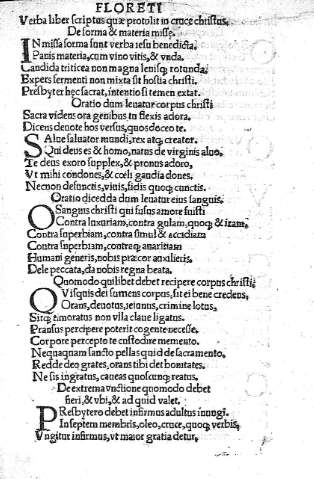 FLORETI
Verba liber scriptus quæ protolit in cruce christus.
De forma & materia missę.
IN missa forma sunt verba iesu benedicta,
Panis materia, cum vino vitis, & vnda.
Candida triticea non magna lenisq; rotunda,
Expers fermenti non mixta sit hostia christi,
Presbyter hęc sacrat, intentio si temen extat.
Oratio dum leuatur corpus christi
Sacra videns ora genibus in flexis adora.
Dicens deuote hos versus, quos doceo te.
SAlue saluator mundi, rex atq; creator.
Qui deus es & homo, natus de virginis aluo,
Te deus exoro supplex, & pronus adoro,
Vt mihi condones, & cœli gaudia dones.
Necnon defunctis, viuis, fidis quoq; cunctis.
Oratio dicēda dum leuatur eius sanguis,
OSanguis christi qui fusus amore fuisti
Contra luxuriam, contra gulam, quoq; & iram,
Contra superbiam, contra simul & accidiam
Contra superbiam, contreq; auaritiam
Humani generis, nobis præcor auxilieris,
Dele peccata, da nobis regna beata.
Quomodo quilibet debet recipere corpus christi;
QVisquis dei sumens corpus, sit ei bene credens,
Orans, deuotus, ieiunus, crimine lotus,
Sitq; timoratus non vlla claue ligatus.
Pransus percipere poterit cogente necesse.
Corpore percepto te custodire memento.
Nequaquam sancto pellas quid de sacramento.
Redde deo grates, orans tibi det bonitates.
Ne sis ingratus, caueas quoscunq; reatus.
De extrema vnctione quomodo debet
fieri, & vbi, & ad quid valet.
PResbytero debet infirmus adultus inungi.
In septem membris, oleo, cruce, quoq; verbis,
Vngitur infirmus, vt maior gratia detur,